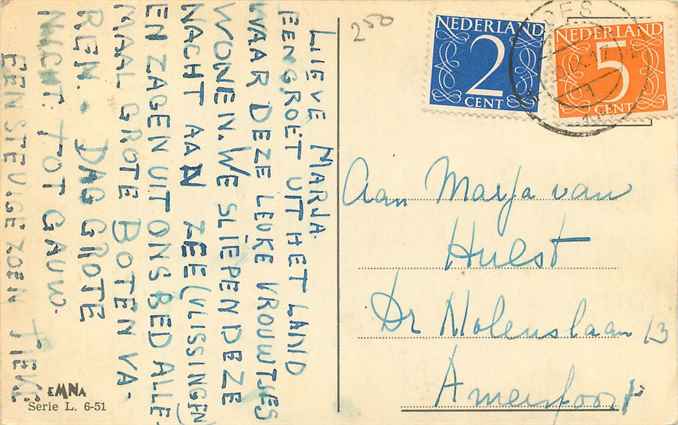 LIEVE MARJA.
EEN GROET UIT HET LAND
WAAR DEZE LEUKE VROUWTJES
WONEN. WE SLIEPEN DEZE
NACHT AAN ZEE (VLISSINGEN)
EN ZAGEN UIT ONS BED ALLE-
MAAL GROTE BOTEN VA-
REN. DAG GROTE
NICHT. TOT GAUW.
EEN STEVIGE ZOEN TIENE
EMNA
Serie L. 6-51
250
NEDERLAND
2
CENT
NEDERLAND
5
CENT
Aan Marja van
Hulst
Dr Molenslaan 13
Amersfoort